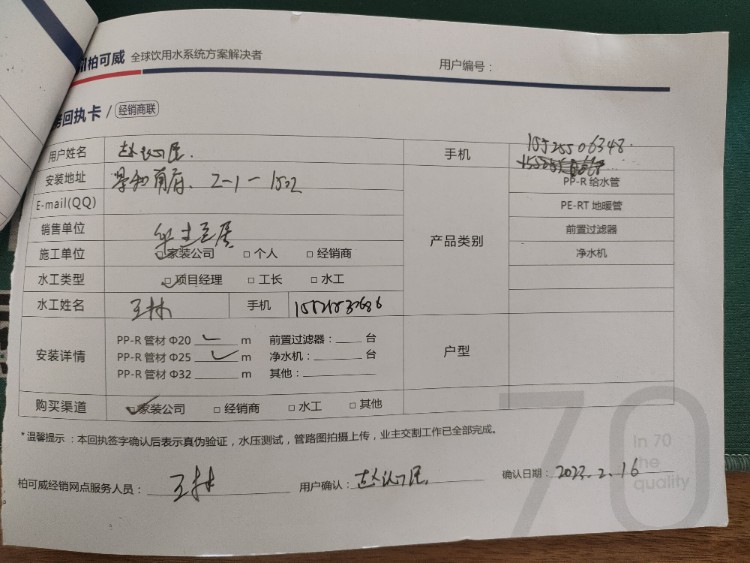 柏可威 全球饮用水系统方案解决者
用户编号：
回执卡 / 经销商联
用户姓名 手机 15525506348
安装地址 2-1-1502 PP-R 给水管
E-mail(QQ) PE-RT 地暖管
销售单位 产品类别 前置过滤器
施工单位 家装公司 □ 个人 □ 经销商 净水机
水工类型 项目经理 □ 工长 □ 水工
水工姓名 王林 手机
安装详情 户型
PP-R 管材 Φ20 ✓ m 前置过滤器：___ 台
PP-R 管材 Φ25 ✓ m 净水机：___ 台
PP-R 管材 Φ32 ___ m 其他：___
购买渠道 家装公司 □ 经销商 □ 水工 □ 其他
*温馨提示：本回执签字确认后表示真伪验证，水压测试，管路图拍摄上传，业主交割工作已全部完成。
70
In 70
the
quality
柏可威经销网点服务人员：王林 用户确认： 确认日期：2023.2.16